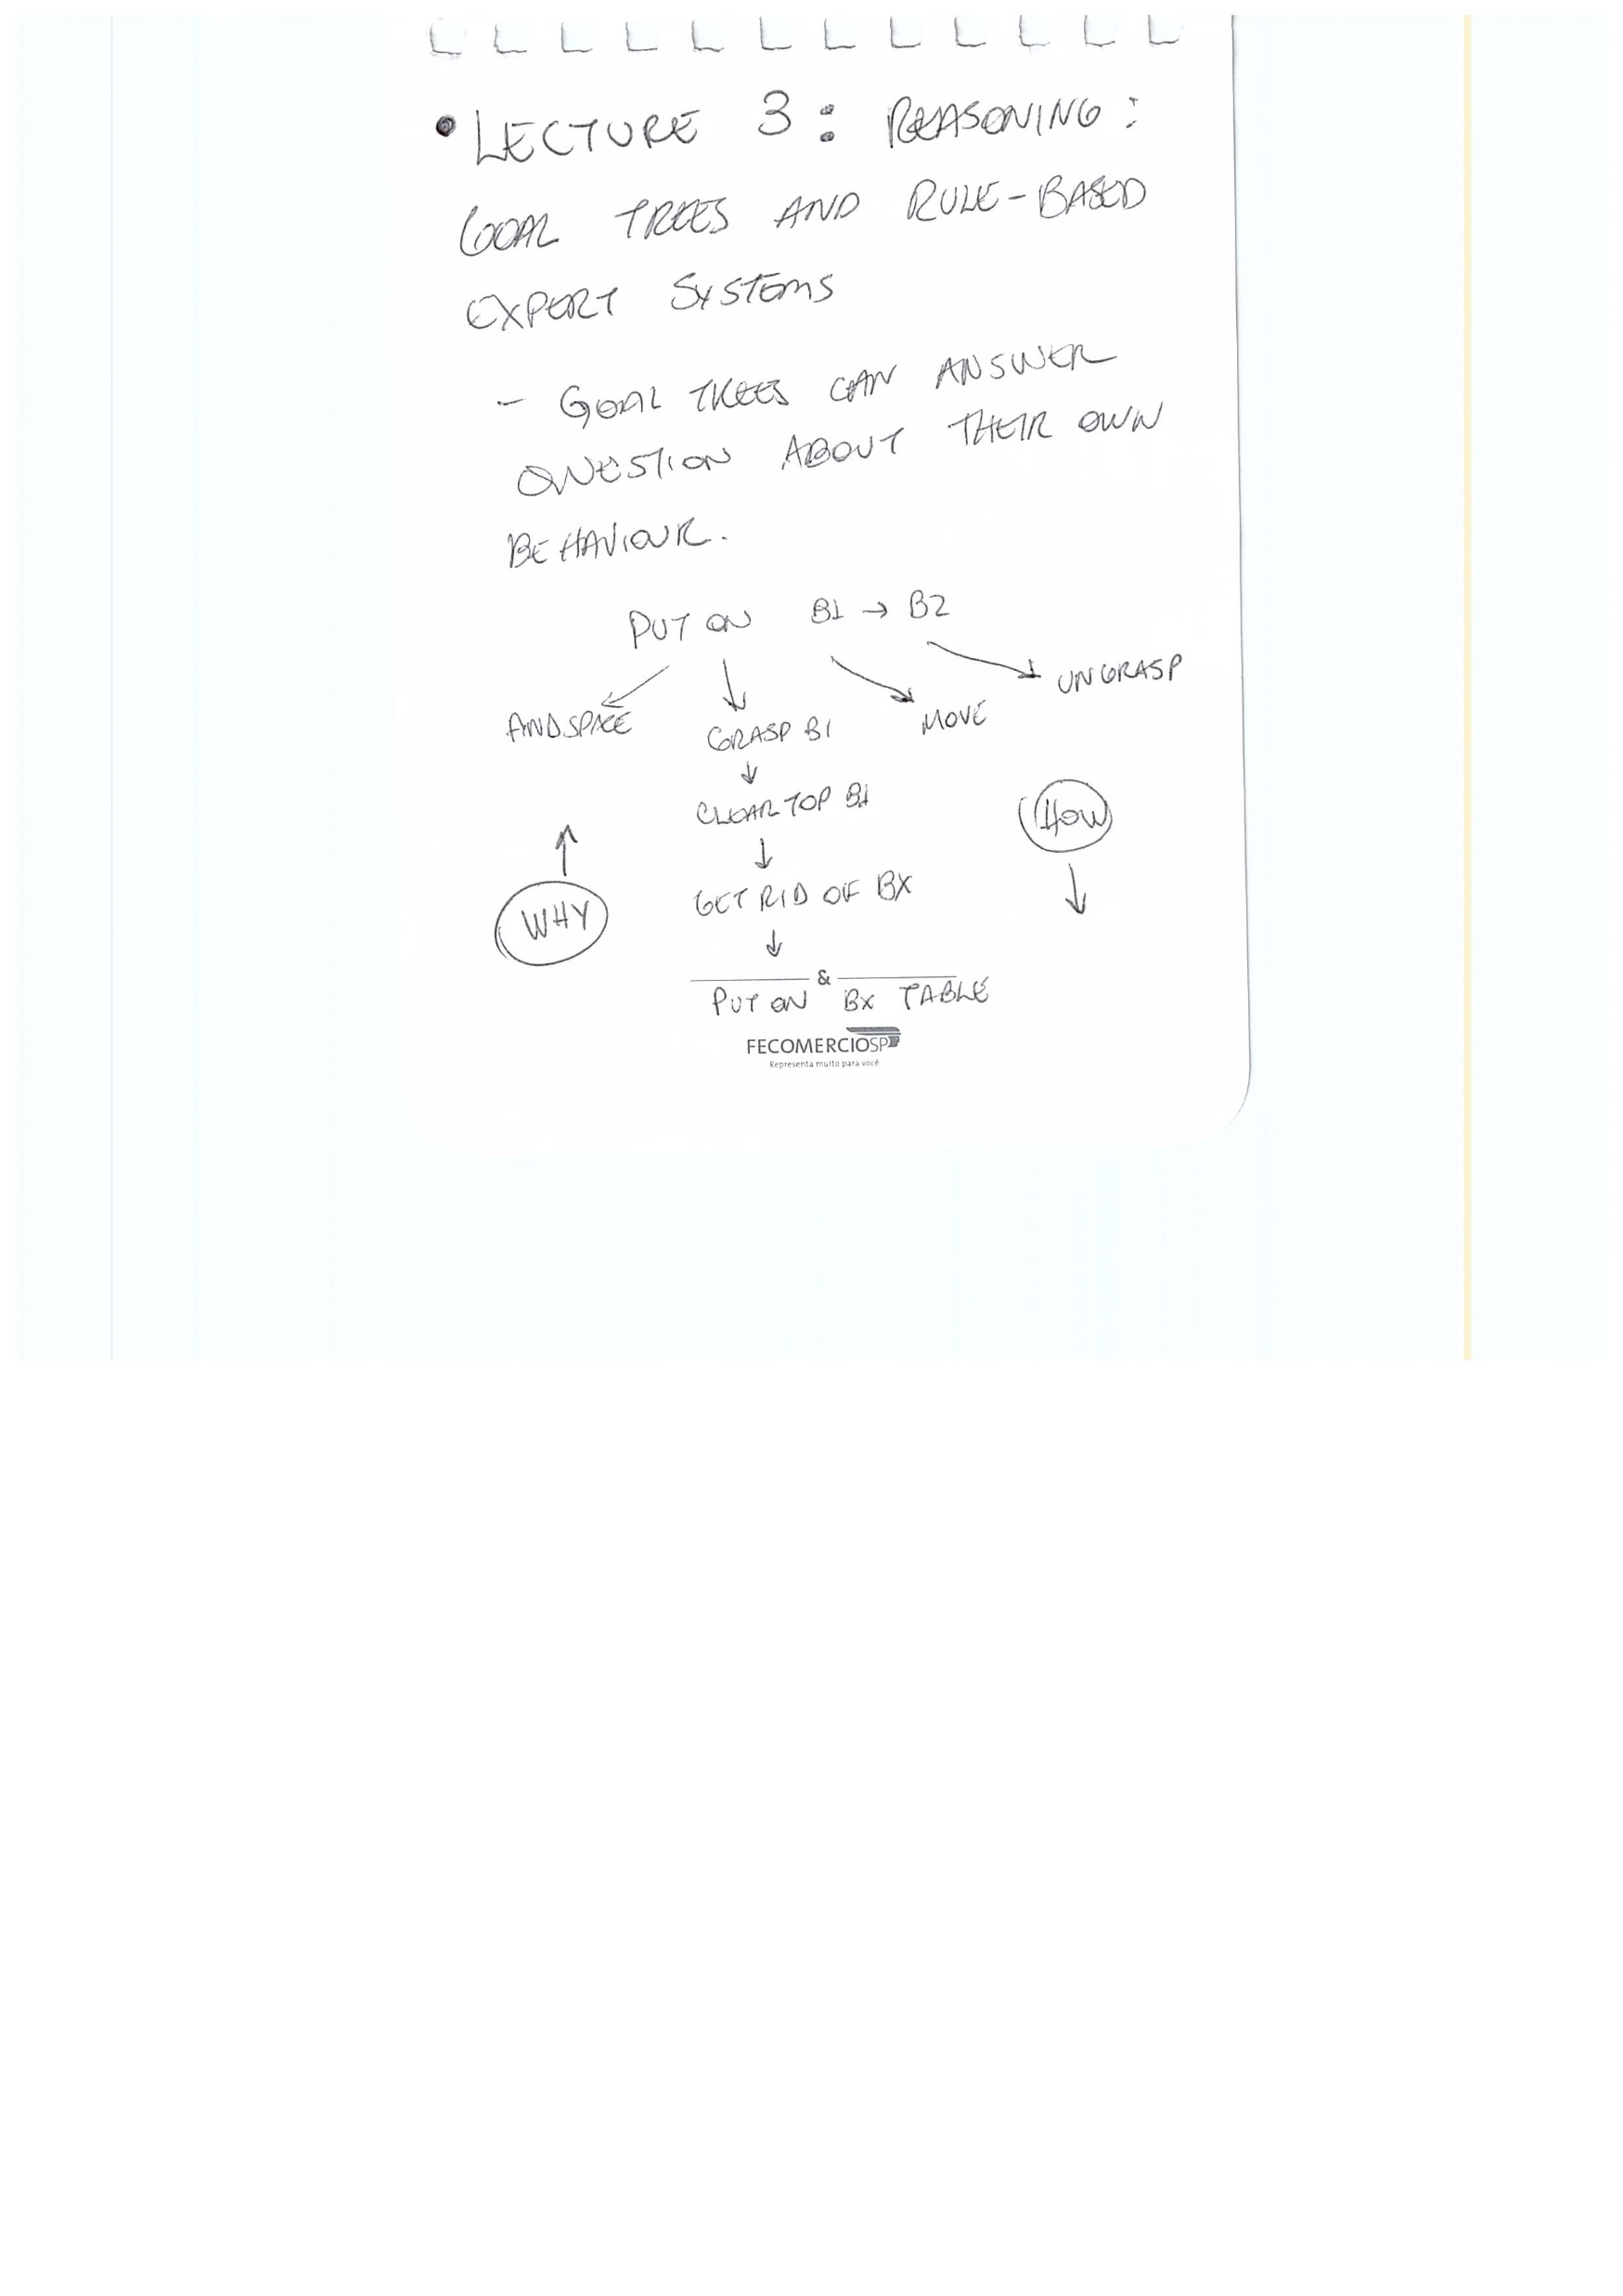 • LECTURE 3: REASONING:
GOAL TREES AND RULE-BASED
EXPERT SYSTEMS
- GOAL TREES CAN ANSWER
QUESTION ABOUT THEIR OWN
BEHAVIOUR.
PUT ON B1 → B2
FINDSPACE GRASP B1 MOVE UNGRASP
CLEAR TOP B1
HOW
GET RID OF BX
WHY
&
PUT ON BX TABLE
FECOMERCIOSP
Representa muito para você